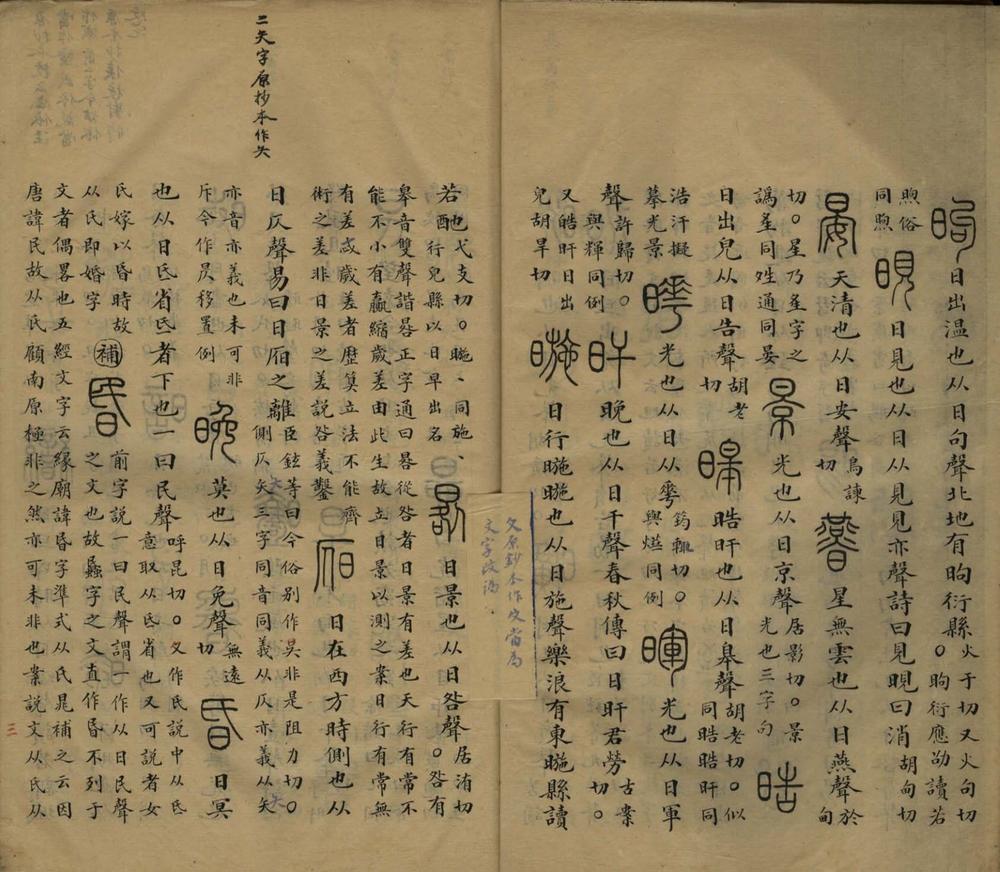 昫日出温也从日句聲北地有昫衍縣火于切又火句切。昫衍應劭讀若
煦俗同煦晛日見也从日从見見亦聲詩曰見晛曰消胡甸切
晏天清也从日安聲烏諫切㬫星無雲也从日燕聲於甸
切。星乃姓字之譌姓同甡通同晏景光也从日京聲居影切。景光也三字句晧
日出皃从日告聲胡老切暤晧旰也从日皋聲胡老切。似同晧晧旰同
浩汗擬摹光景曄光也从日从𠌶筠輒切。與爗同例暉光也从日軍
聲許歸切。與輝同例旰晚也从日干聲春秋傳曰日旰君勞古案切。
又皓旰日出皃胡旱切暆日行暆也从日施聲樂浪有東暆縣讀
若酏弋支切。暆、同施、行皃縣以日早出名晷日景也从日咎聲居洧切。咎有
臯音雙聲諧晷正字通曰晷從咎者日景有差也天行有常不
能不小有贏縮歲差由此生故立日景以測之案日行有常無
有差忒歲差者歷筭立法不能齊
術之差非日景之差説咎義鑿𣅔日在西方時側也从
日仄聲易曰日𣅔之離臣鉉等曰今俗別作昃非是阻力切。側仄矢三字同音同義从仄亦義从矢
亦音亦義也未可非斥今作昃移置例晚莫也从日免聲無遠切昏日冥
也从日氐省氐者下也一曰民聲呼昆切。又作氏説中从氐意取从氐省也又可説者女
氏嫁以昏時故从氏即婚字補昬前字説一曰民聲謂一作从日民聲之文也故蟲字之文直作昬不列于
文者偶畧也五經文字云緣廟諱昬字準式从氏晁補之云因
唐諱民故从氏顧南原極非之然亦可未非也案説文从氏从
二矢字原抄本作失
文原鈔本作攵當為
文字改誤
三